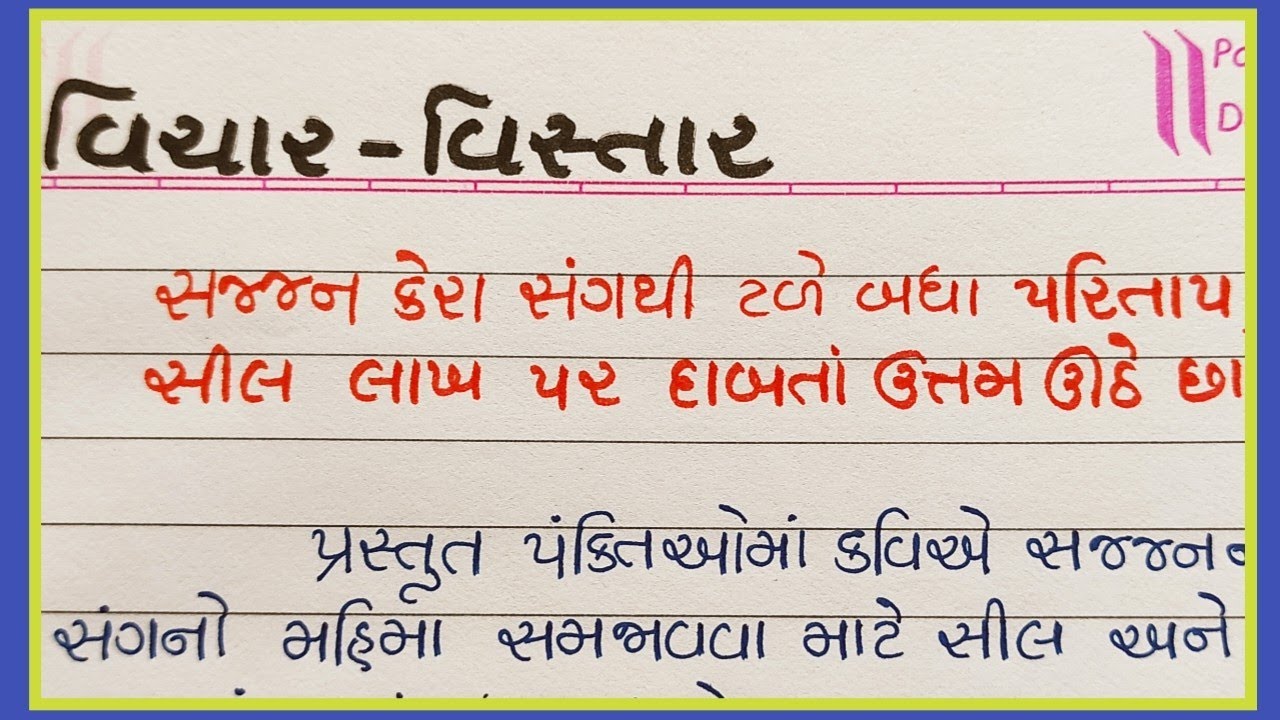 વિચાર - વિસ્તાર
સજ્જન કેરા સંગથી ટળે બધા પરિતાપ
સીલ લાખ પર દાબતાં ઉત્તમ ઊઠે
પ્રસ્તુત પંક્તિઓમાં કવિએ
સંગનો મહિમા સમજાવવા માટે સીલ અને